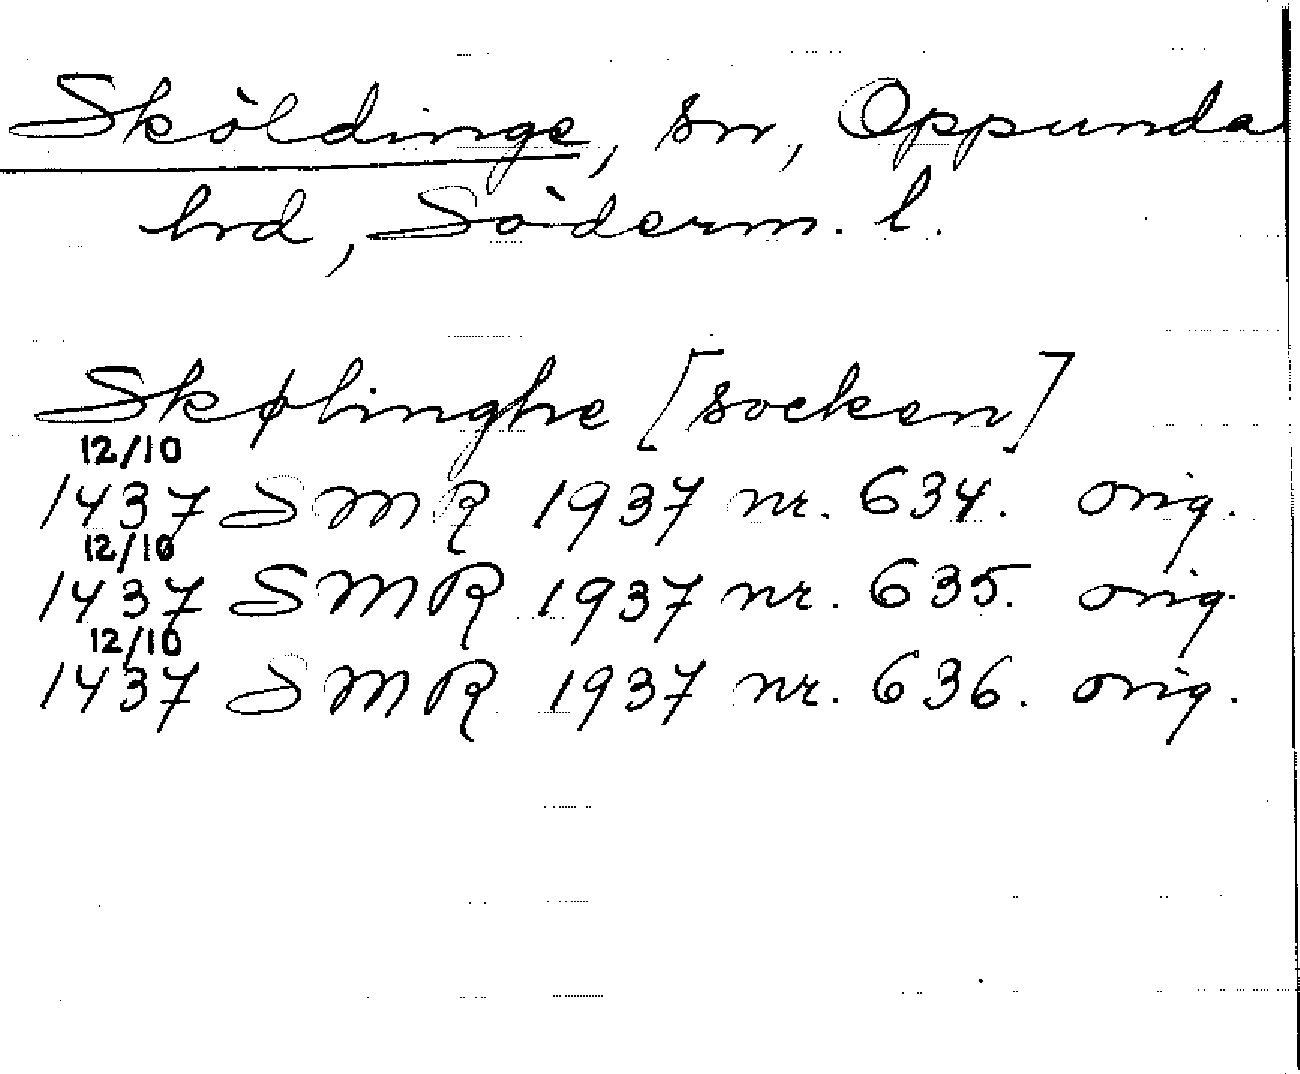 Sköldinge, sn, Oppunda
hrd, Söderm. l.
Skølinghe [socken]
12/10
1437 SMR 1937 nr. 634. orig.
12/10
1437 SMR 1937 nr. 635. orig.
12/10
1437 SMR 1937 nr. 636. orig.